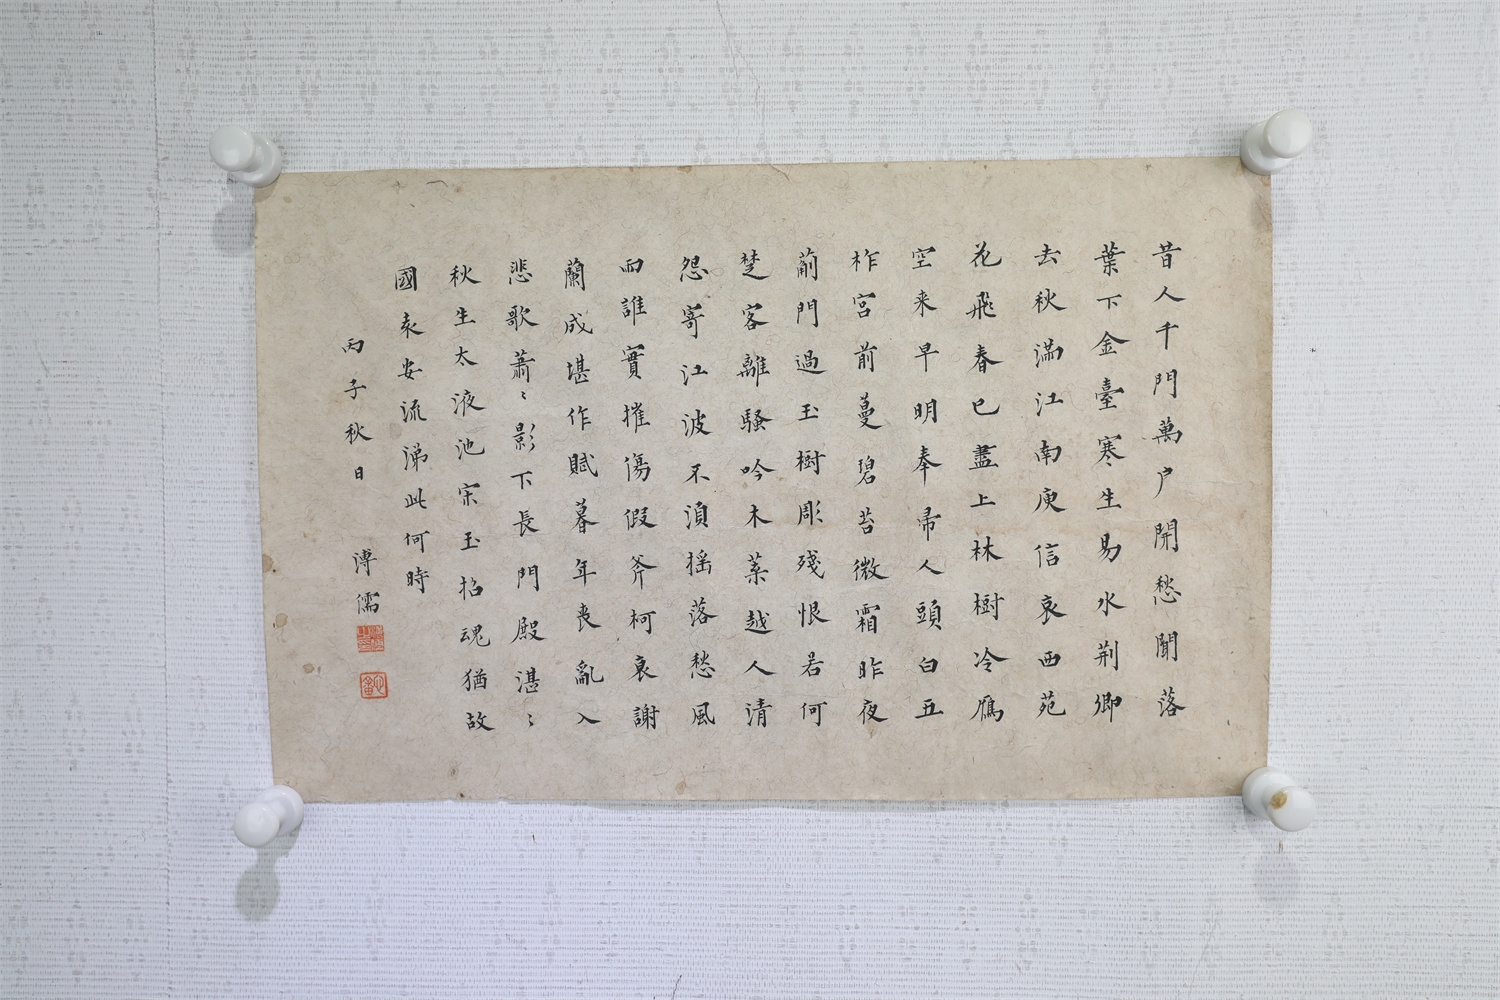 昔人千門萬户開愁聞落
葉下金臺寒生易水荆卿
去秋滿江南庾信哀西苑
花飛春已盡上林樹冷鴈
空来早明奉帚人頭白五
柞宮前蔓碧苔微霜昨夜
薊門過玉樹彫殘恨若何
楚客離騷吟木葉越人清
怨寄江波不須摇落愁風
雨誰實摧傷假斧柯衰謝
蘭成堪作賦暮年喪亂入
悲歌蕭〻影下長門殿湛〻
秋生太液池宋玉招魂猶故
國袁安流涕此何時
丙子秋日 溥儒